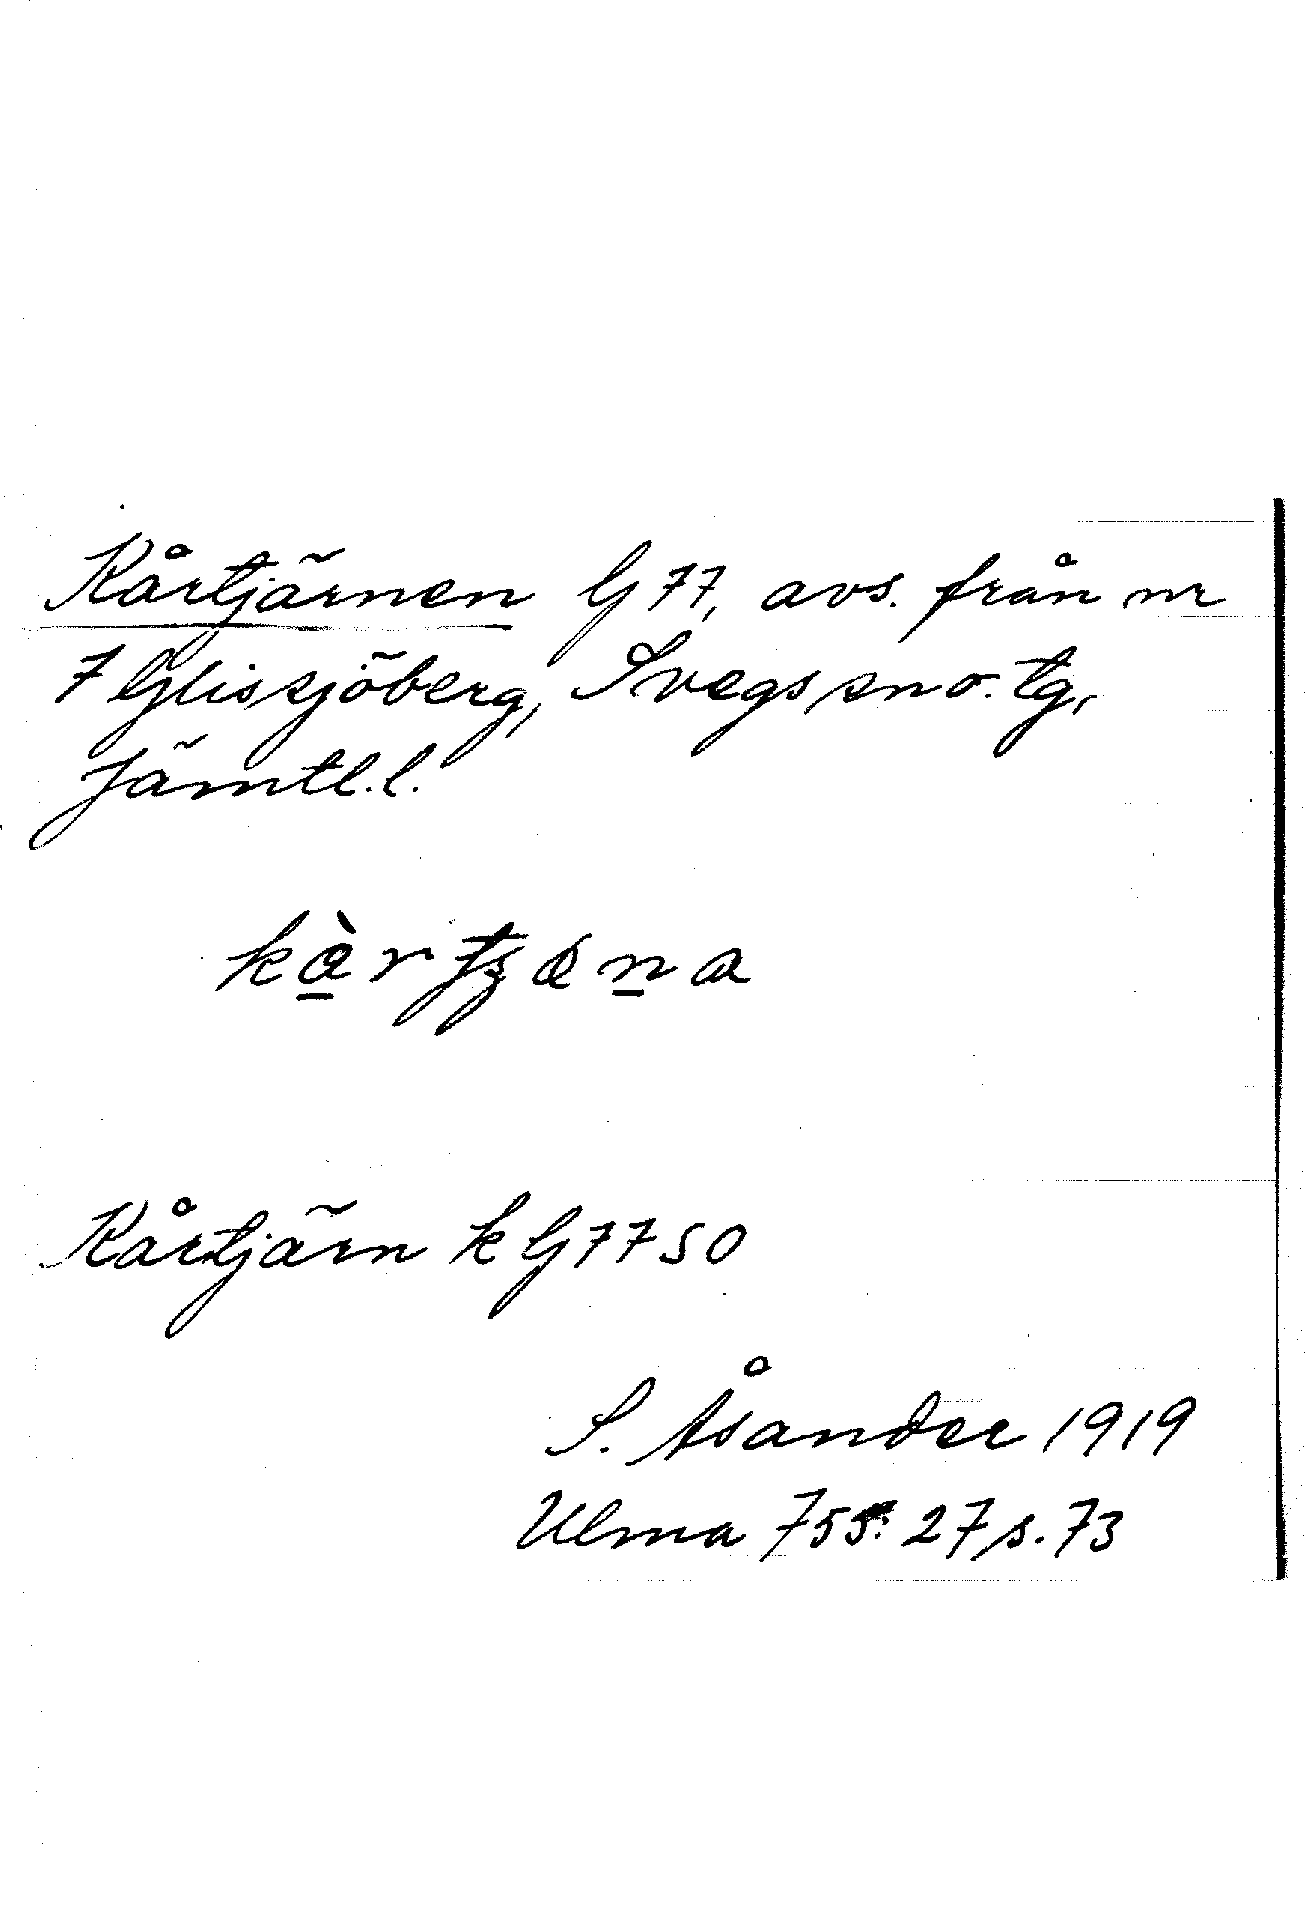 Kårtjärnen G 77, avs. från nr
7 Glissjöberg, Svegs sn o. tg,
Jämtl.l.
Kårtjärn k G 77 50
S. Åsander 1919
Ulma 755: 27 s. 73